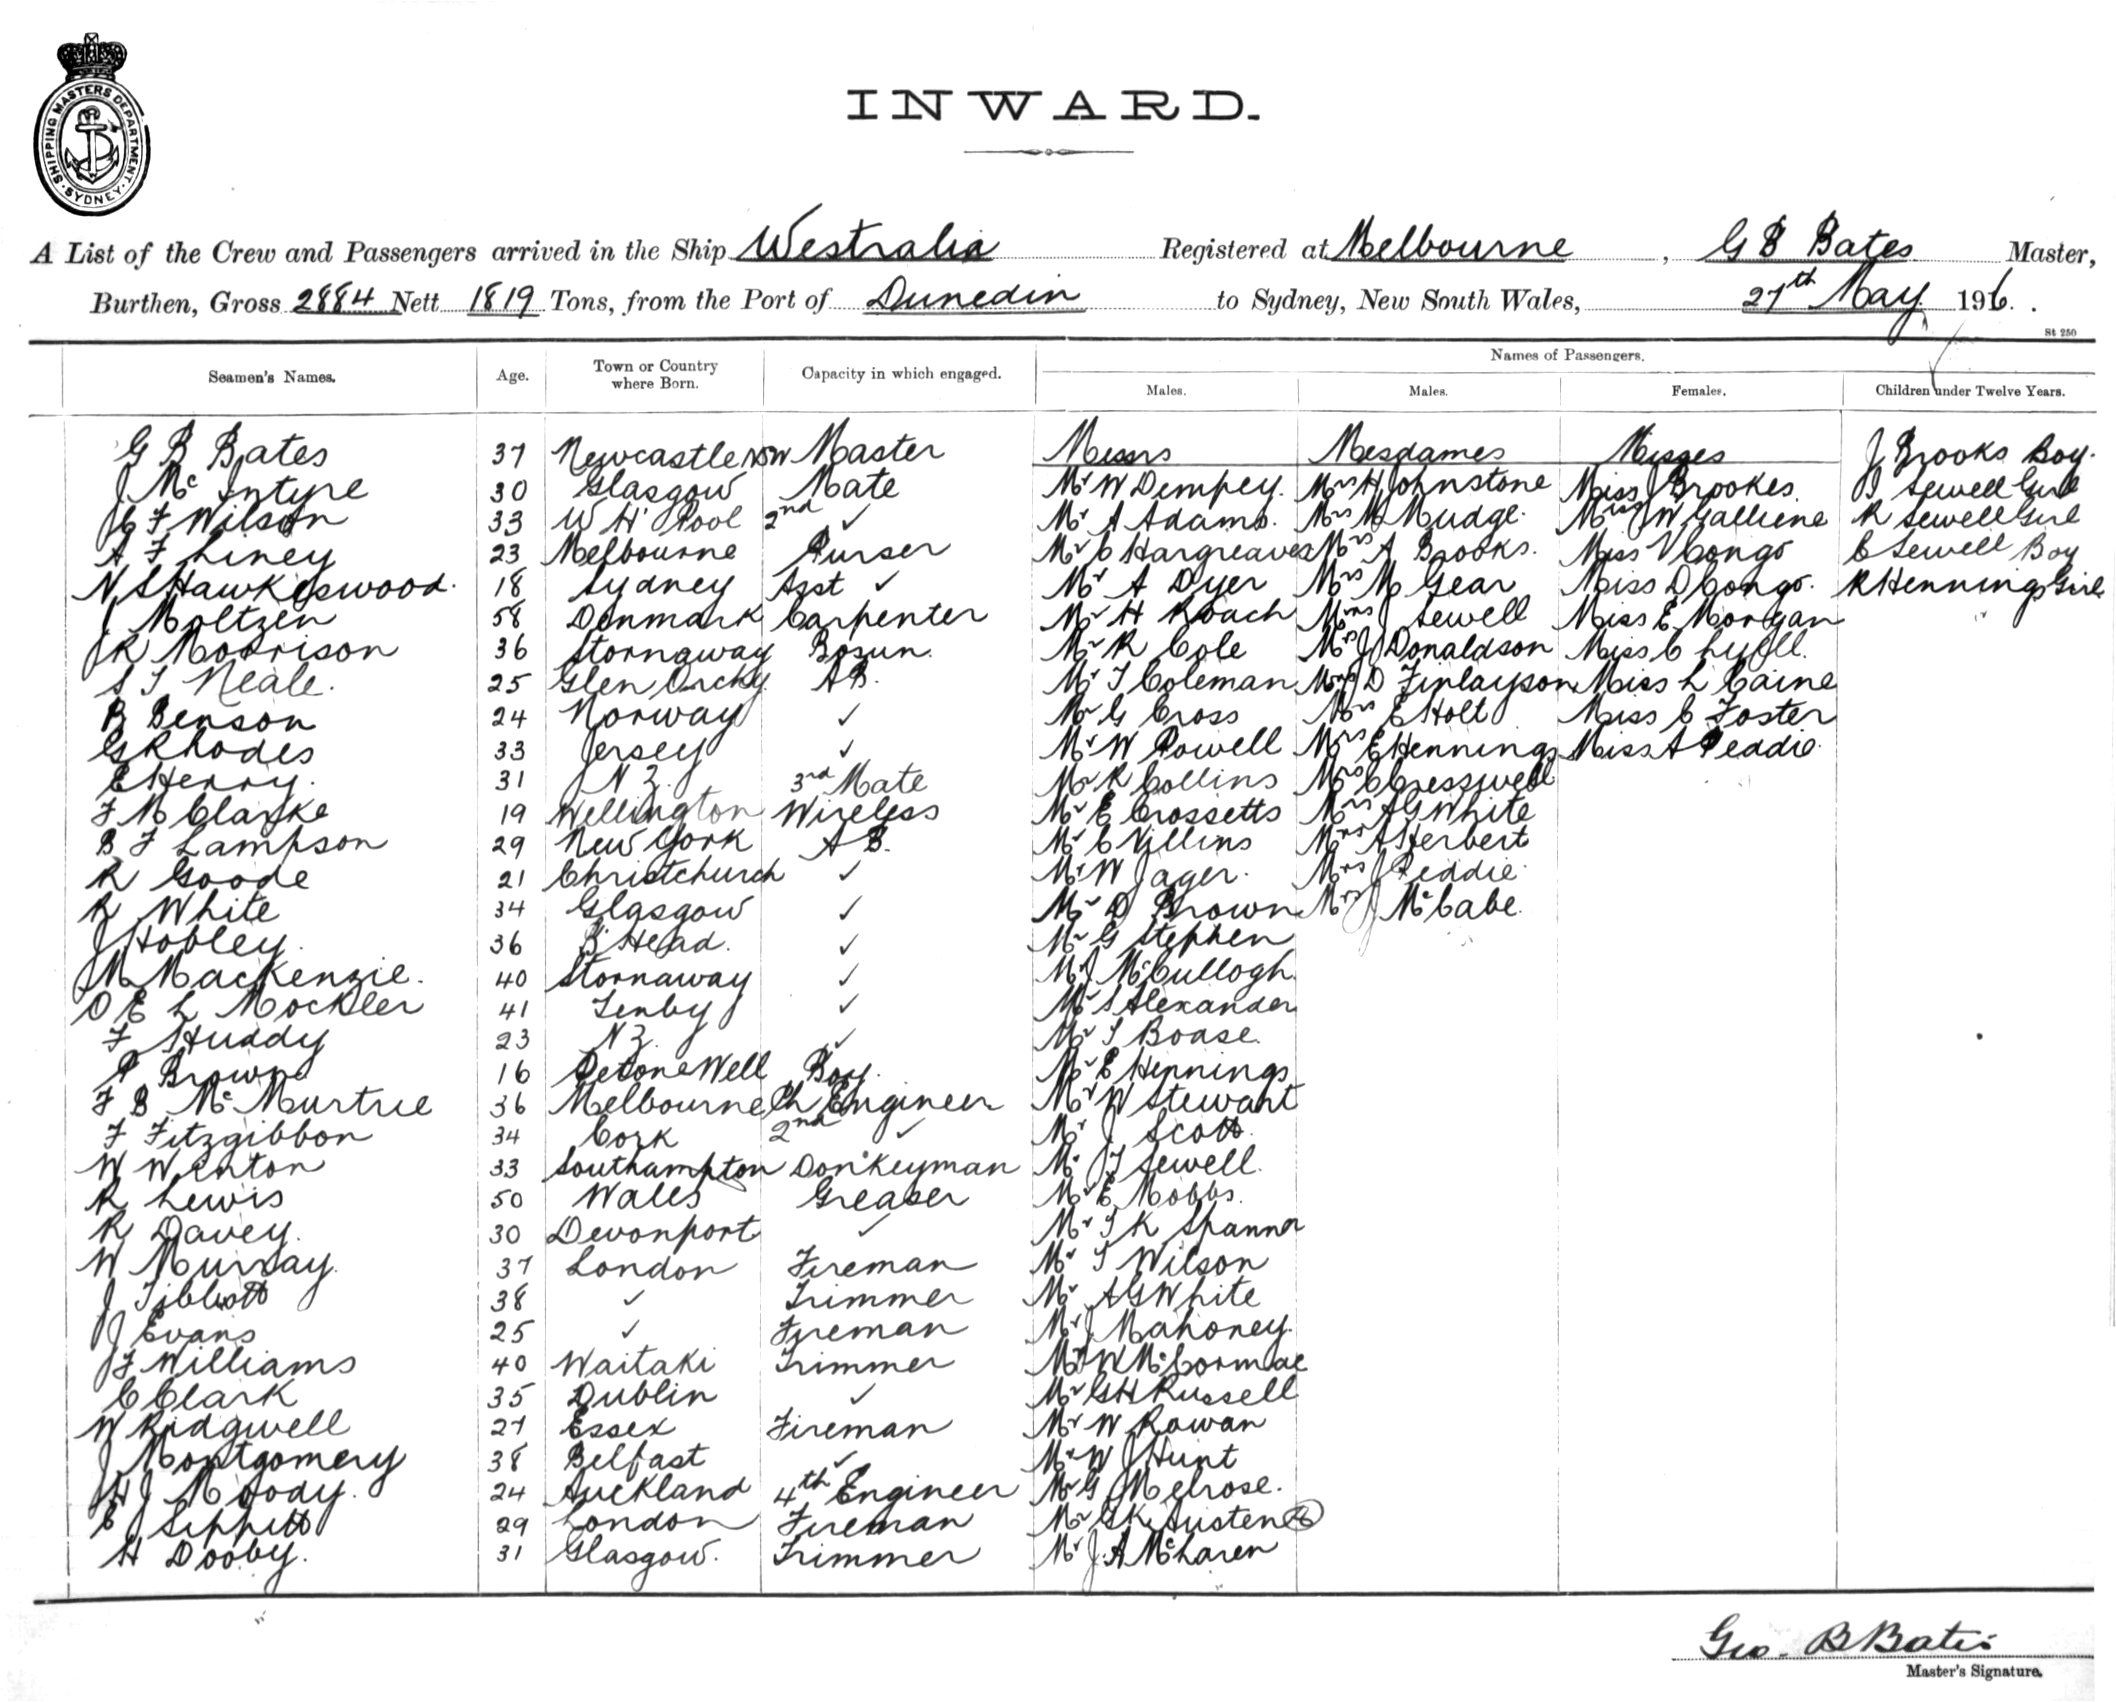 SHIPPING MASTERS DEPARTMENT. SYDNEY
INWARD.
A List of the Crew and Passengers arrived in the Ship Westralia Registered at Melbourne, G B Bates Master,
Burthen, Gross 2884 Nett 1819 Tons, from the Port of Dunedin to Sydney, New South Wales, 27th May 1916.
St 250
Seamen's Names. Age. Town or Country where Born. Capacity in which engaged. Names of Passengers.
Males. Males. Females. Children under Twelve Years.
G B Bates 37 Newcastle NSW Master Messrs Mesdames Misses J Brooks Boy.
J McIntyre 30 Glasgow Mate Mr W Dempey. Mrs H Johnstone Miss J Brookes. J Sewell Girl
F Wilson 33 W H' Pool 2nd ✓ Mr A Adams. Mrs M Mudge. Miss W Galliene R Sewell Girl
A F Liney 23 Melbourne Purser Mr C Hargreaves Mrs A Brooks. Miss V Congo C Sewell Boy
N S Hawkeswood. 18 Sydney Asst ✓ Mr A Dyer Mrs M Gear Miss D Congo. R Hennings Girl
J Moltzen 58 Denmark Carpenter Mr H Roach Mrs J Sewell Miss E Morgan
R Morrison 36 Stornaway Bosun. Mr R Cole Mrs J Donaldson Miss C Lyell.
S J Neale. 25 Glen Orchy. AB. Mr T Coleman Mrs D Finlayson Miss L Caine
B Benson 24 Norway ✓ Mr G Cross Mrs E Holt Miss C Foster
G Rhodes 33 Jersey ✓ Mr W Powell Mrs E Hennings Miss A Peddie.
E Henry. 31 N Z. 3rd Mate Mr R Collins Mrs C Cresswell
F M Clarke 19 Wellington Wireless Mr E Crossetts Mrs A G White
B F Lampson 29 New York A B. Mr C Villins Mrs A Herbert
R Goode 21 Christchurch ✓ Mr W Jager. Mrs J Peddie.
R White 34 Glasgow ✓ Mr D Brown Mrs J McCabe.
J Hobley. 36 B'Head. ✓ Mr G Stephen
M Mackenzie. 40 Stornaway ✓ Mr J McCullogh.
D E L Mockler 41 Tenby ✓ Mr S Alexander
F Huddy 23 N Z. ✓ Mr T Boase.
P Brown 16 Petone Well Boy. Mr E Hennings
F B McMurtrie 36 Melbourne Ch Engineer Mr W Stewart
F Fitzgibbon 34 Cork 2nd ✓ Mr J Scott.
W Winton 33 Southampton Donkeyman Mr T Sewell.
R Lewis 50 Wales Greaser Mr E Mobbs.
R Davey. 30 Devonport ✓ Mr T K Spanner
W Murray. 37 London Fireman Mr T Wilson
J Tibbott 38 ✓ Trimmer Mr A G White
J Evans 25 ✓ Fireman Mr J Mahoney.
F Williams 40 Waitaki Trimmer Mr W McCormac
C Clark 35 Dublin ✓ Mr G H Russell
W Ridgwell 27 Essex Fireman Mr W Rowan
J Montgomery 38 Belfast ✓ Mr W J Hunt
H J Moody. 24 Auckland 4th Engineer Mr G Melrose.
E J Sippitt 29 London Fireman Mr G K Austen
H Dooby. 31 Glasgow. Trimmer Mr J. A McLaren
Geo. B Bates
Master's Signature.